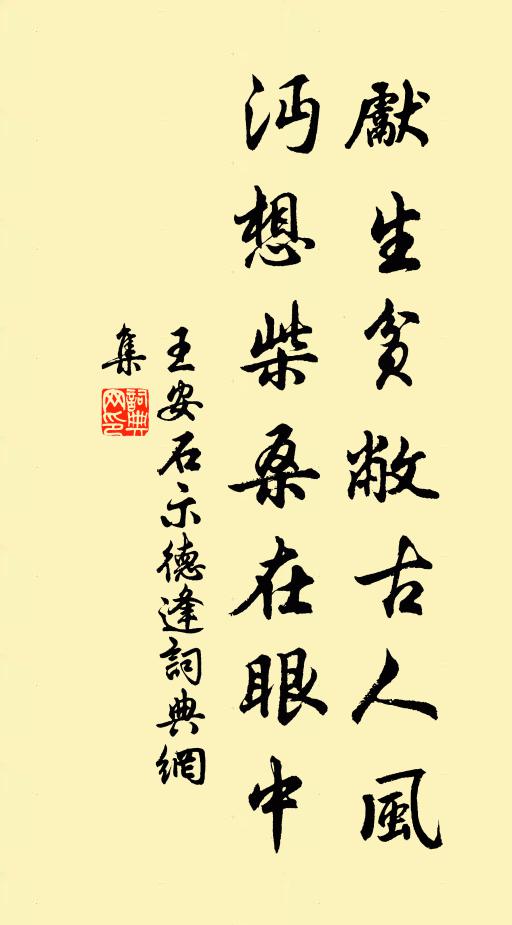 獻生貧敝古人風
沔想柴桑在眼中
王安石示德逢詞典網
集
詞典
网印